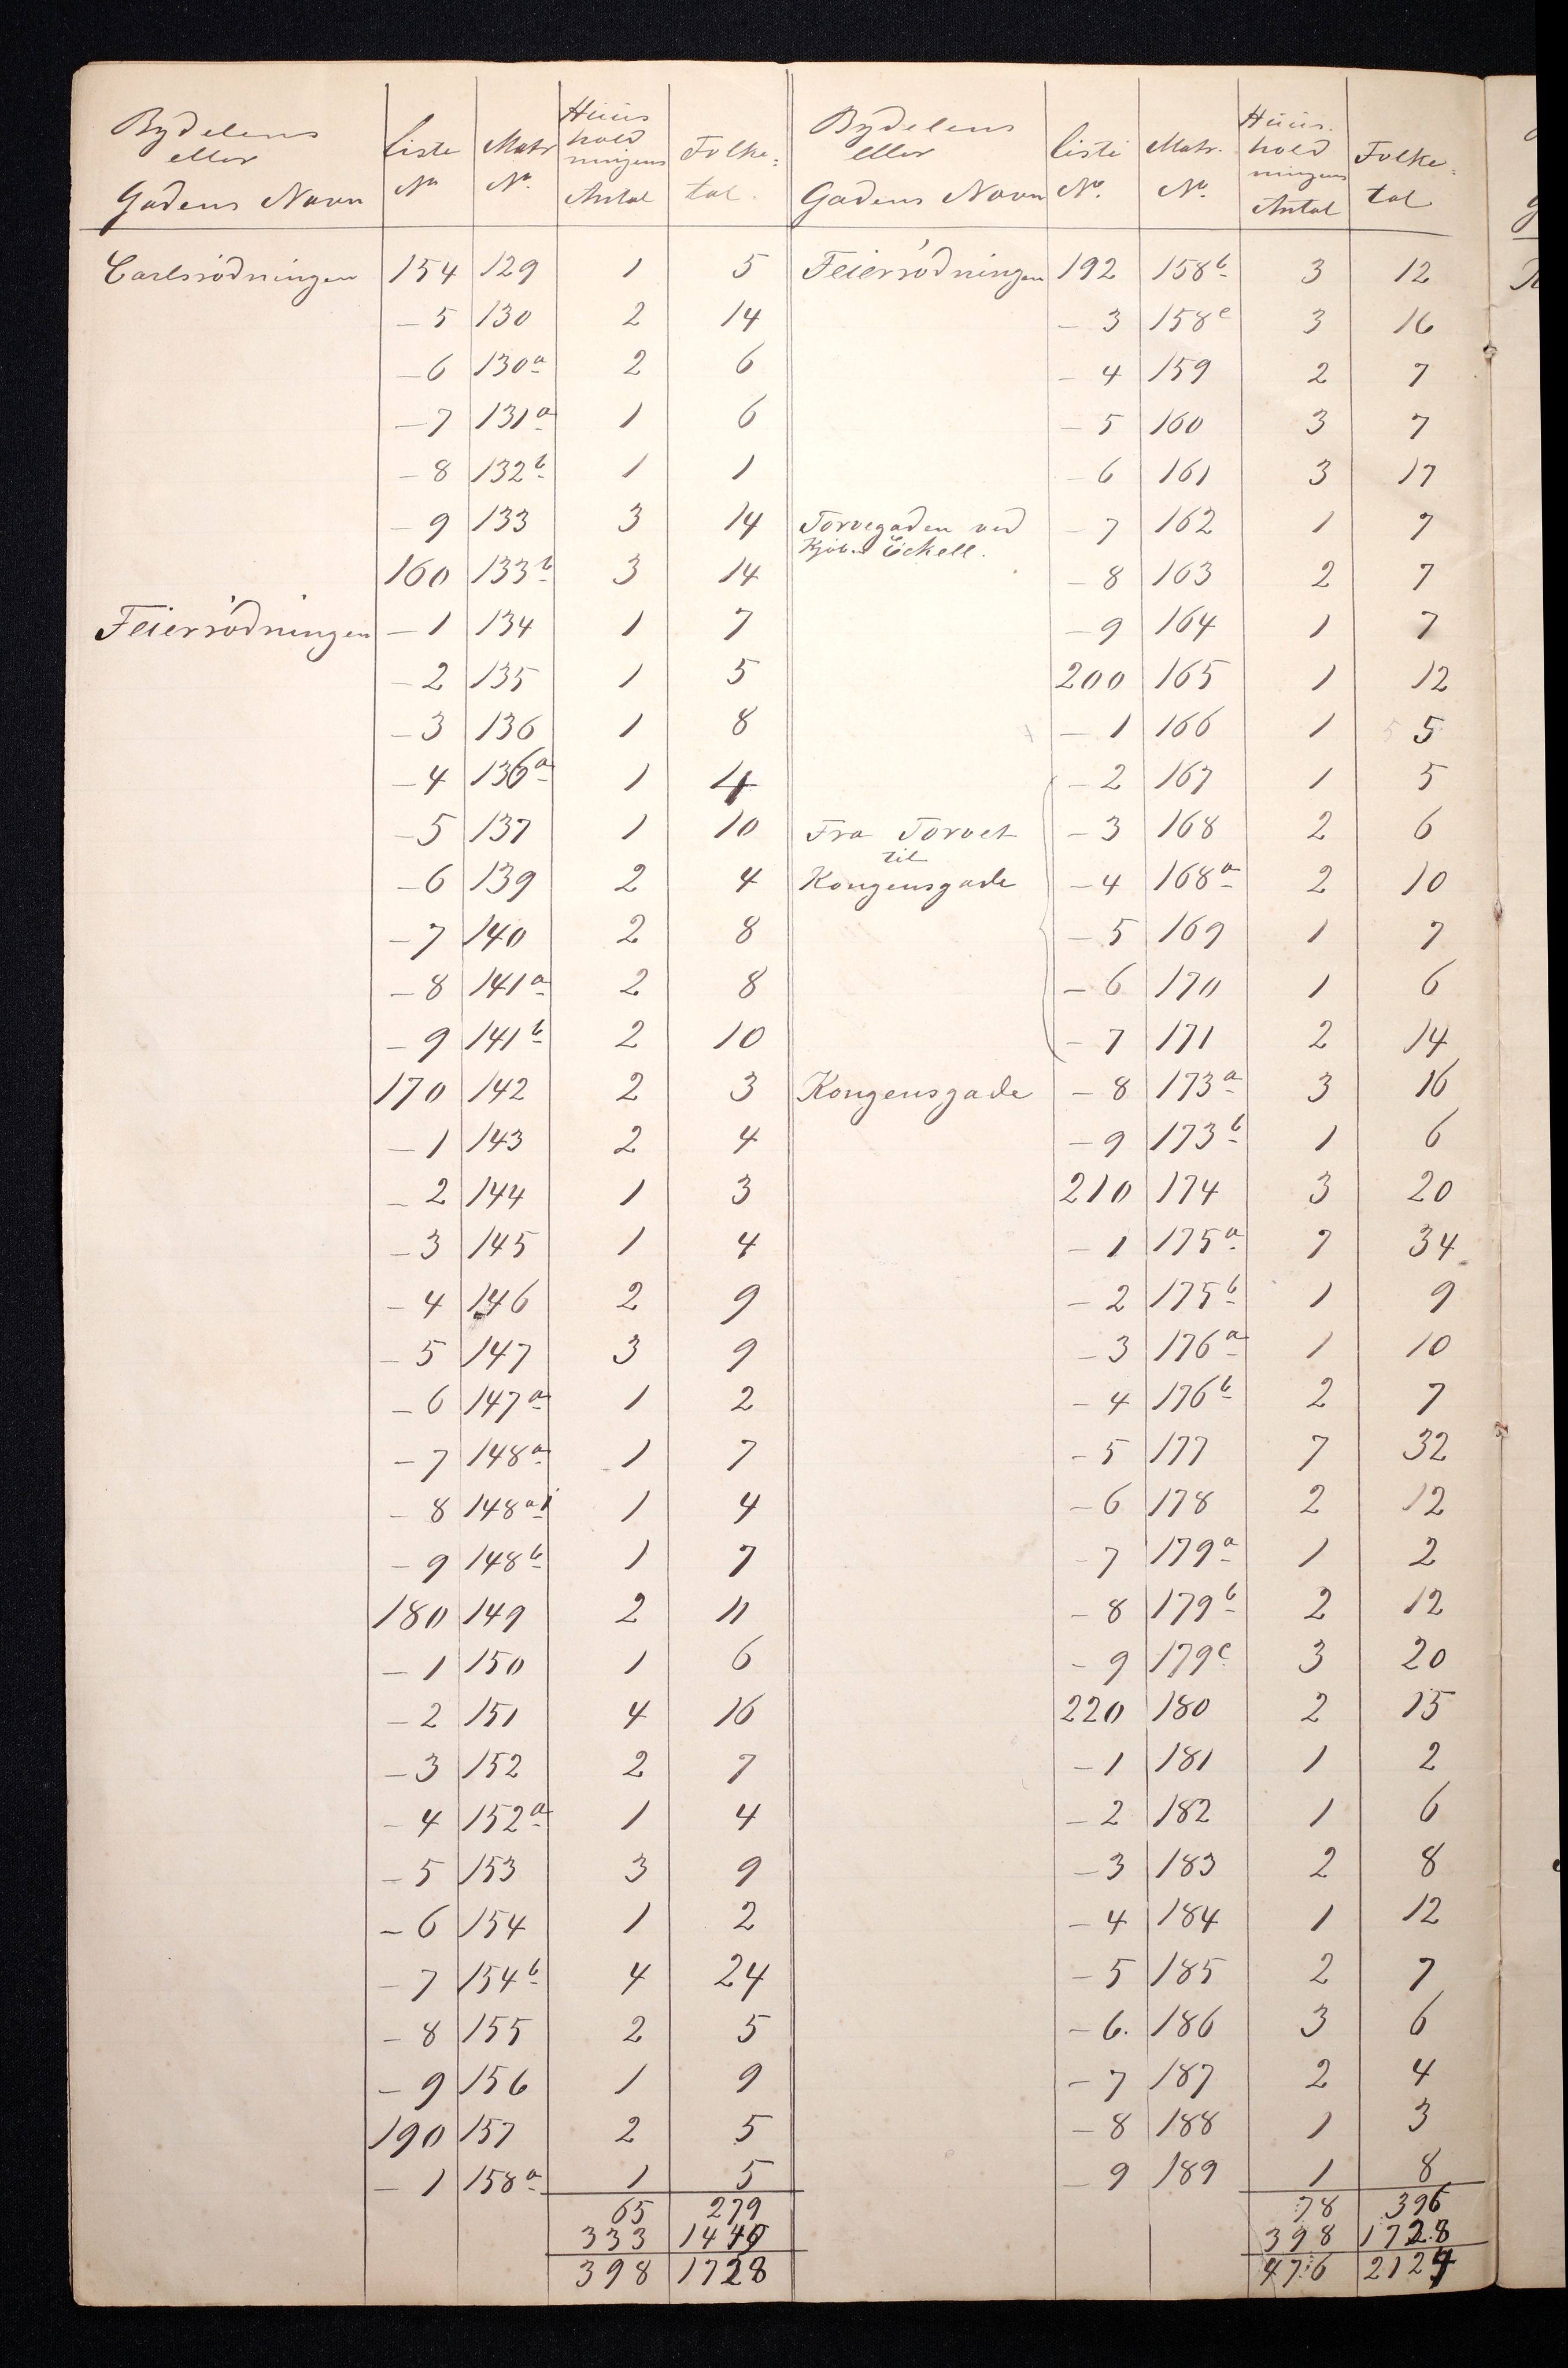 Bydelens eller Gadens Navn | Liste No | Matr No. | Huus hold ningens Antal | Folke= tal.
Carlsrödningen | 154 | 129 | 1 | 5
– 5 | 130 | 2 | 14
– 6 | 130a | 2 | 6
– 7 | 131a | 1 | 6
– 8 | 132b | 1 | 1
– 9 | 133 | 3 | 14
160 | 133b | 3 | 14
Feierrödningen | – 1 | 134 | 1 | 7
– 2 | 135 | 1 | 5
– 3 | 136 | 1 | 8
– 4 | 136a | 1 | 4
– 5 | 137 | 1 | 10
– 6 | 139 | 2 | 4
– 7 | 140 | 2 | 8
– 8 | 141a | 2 | 8
– 9 | 141b | 2 | 10
170 | 142 | 2 | 3
– 1 | 143 | 2 | 4
– 2 | 144 | 1 | 3
– 3 | 145 | 1 | 4
– 4 | 146 | 2 | 9
– 5 | 147 | 3 | 9
– 6 | 147a | 1 | 2
– 7 | 148a | 1 | 7
– 8 | 148a1 | 1 | 4
– 9 | 148b | 1 | 7
180 | 149 | 2 | 11
– 1 | 150 | 1 | 6
– 2 | 151 | 4 | 16
– 3 | 152 | 2 | 7
– 4 | 152a | 1 | 4
– 5 | 153 | 3 | 9
– 6 | 154 | 1 | 2
– 7 | 154b | 4 | 24
– 8 | 155 | 2 | 5
– 9 | 156 | 1 | 9
190 | 157 | 2 | 5
– 1 | 158a | 1 | 5
65 | 279
333 | 1449
398 | 1728
Bydelens eller Gadens Navn | Liste No. | Matr. No. | Huus. hold ningens Antal | Folke= tal
Feierrödningen | 192 | 158b | 3 | 12
– 3 | 158c | 3 | 16
– 4 | 159 | 2 | 7
– 5 | 160 | 3 | 7
– 6 | 161 | 3 | 17
Torvegaden ved | – 7 | 162 | 1 | 7
Kjöbm Eckell.
– 8 | 163 | 2 | 7
– 9 | 164 | 1 | 7
200 | 165 | 1 | 12
– 1 | 166 | 1 | 5 5
– 2 | 167 | 1 | 5
Fra Torvet | – 3 | 168 | 2 | 6
til
Kongensgade | – 4 | 168a | 2 | 10
– 5 | 169 | 1 | 7
– 6 | 170 | 1 | 6
– 7 | 171 | 2 | 14
Kongensgade | – 8 | 173a | 3 | 16
– 9 | 173b | 1 | 6
210 | 174 | 3 | 20
– 1 | 175a | 7 | 34
– 2 | 175b | 1 | 9
– 3 | 176a | 1 | 10
– 4 | 176b | 2 | 7
– 5 | 177 | 7 | 32
– 6 | 178 | 2 | 12
– 7 | 179a | 1 | 2
– 8 | 179b | 2 | 12
– 9 | 179c | 3 | 20
220 | 180 | 2 | 15
– 1 | 181 | 1 | 2
– 2 | 182 | 1 | 6
– 3 | 183 | 2 | 8
– 4 | 184 | 1 | 12
– 5 | 185 | 2 | 7
– 6. | 186 | 3 | 6
– 7 | 187 | 2 | 4
– 8 | 188 | 1 | 3
– 9 | 189 | 1 | 8
78 | 396
398 | 1728
476 | 2124